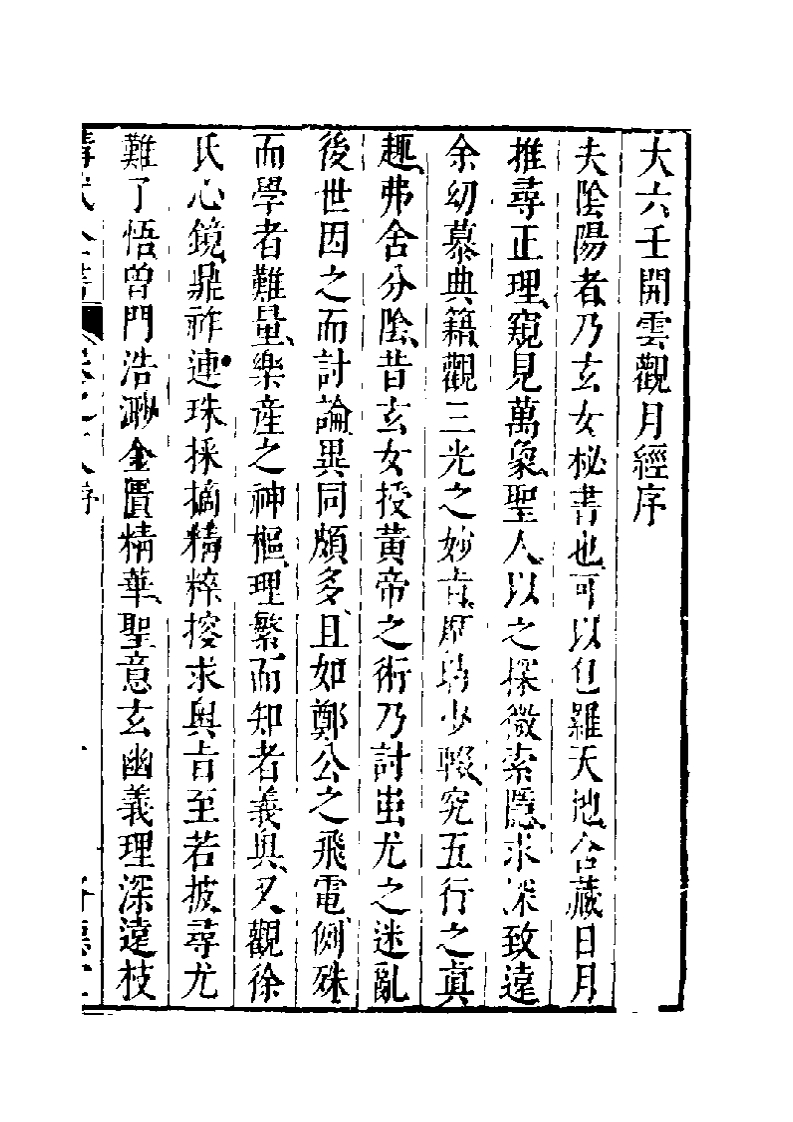 大六壬開雲觀月經序
夫陰陽者乃玄女秘書也可以包羅天地含藏日月
推尋正理窺見萬象聖人以之探微索隱求深致遠
余幼慕典籍觀三光之妙旨歷時少輟究五行之真
趣弗舍分陰昔玄女授黃帝之術乃討蚩尤之迷亂
後世因之而討論異同頗多且如鄭公之飛電例殊
而學者難量樂産之神樞理繁而知者義奥又觀徐
氏心鏡鼎祚連珠採摘精粹搜求奥旨至若披尋尤
難了悟曾門浩渺金匱精華聖意玄幽義理深遠枝